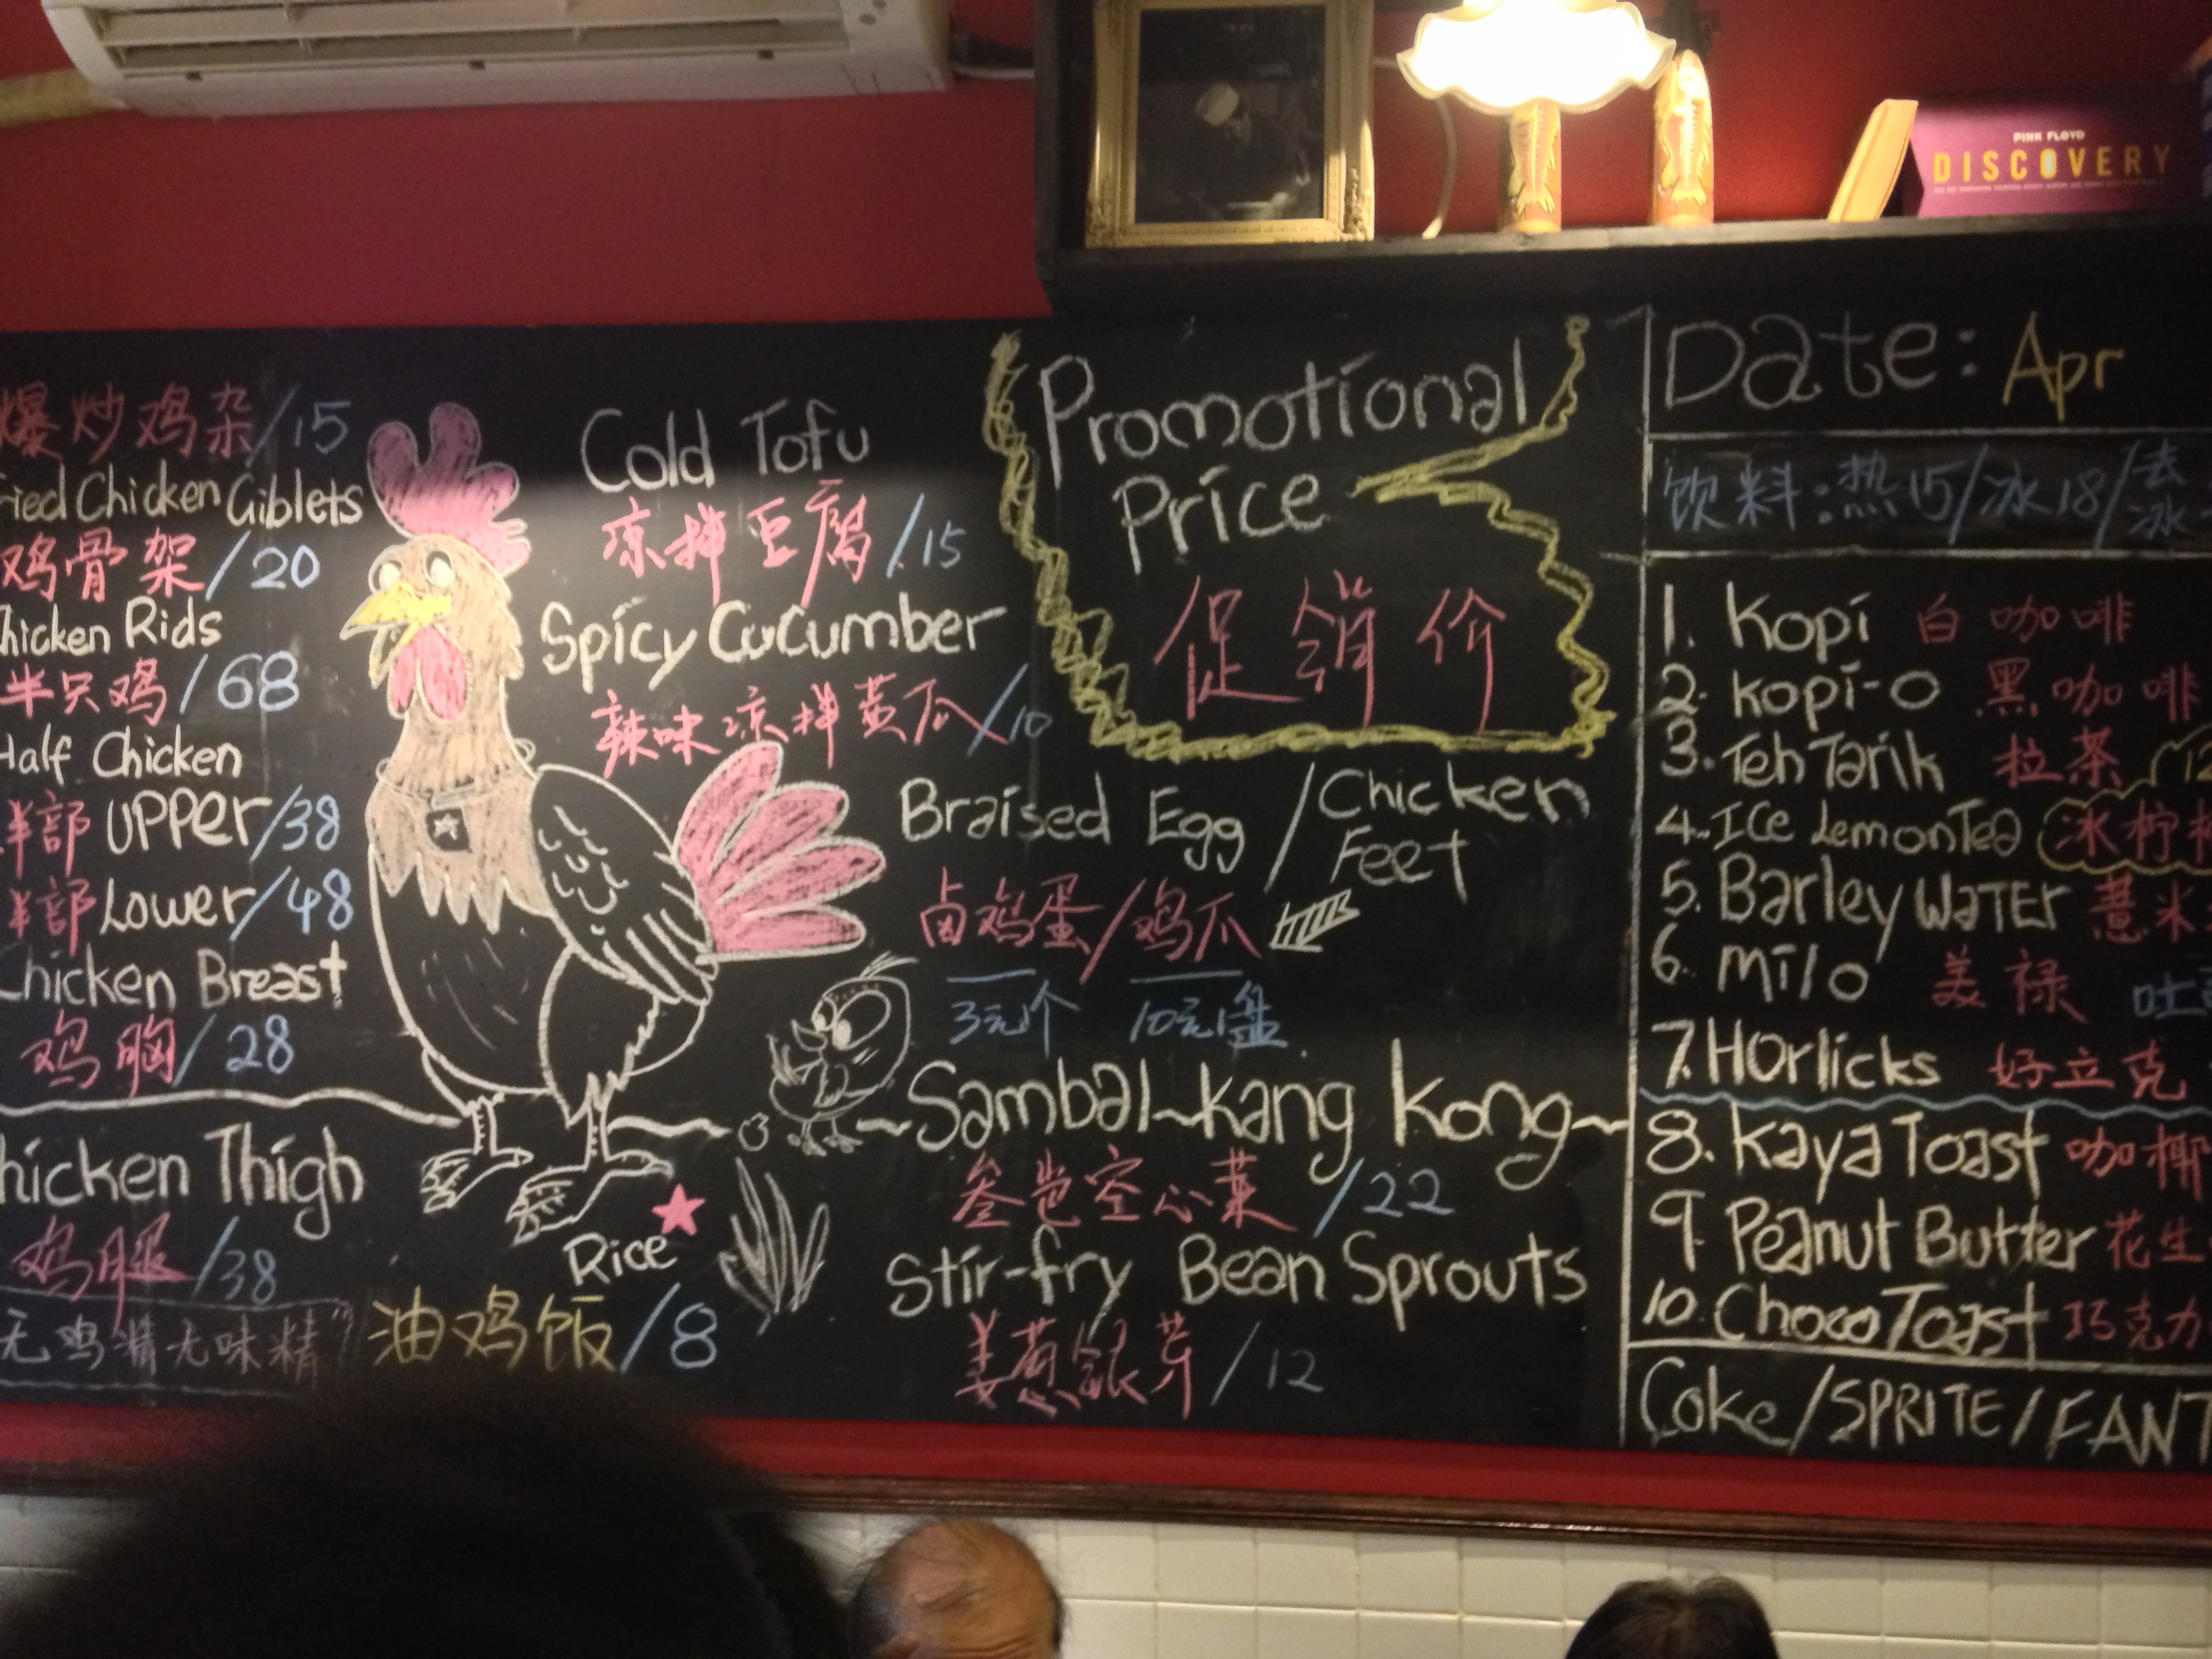 PINK FLOYD
DISCOVERY
爆炒鸡杂/15
ried Chicken Giblets
鸡骨架/20
hicken Rids
半只鸡/68
Half Chicken
半部 UPPer/38
半部 Lower/48
Chicken Breast
鸡胸/28
hicken Thigh
鸡腿/38
无鸡精无味精
Rice
油鸡饭/8
Cold Tofu
凉拌豆腐/15
Spicy Cucumber
辣味凉拌黄瓜/10
Promotional
Price
促销价
Braised Egg / Chicken
Feet
卤鸡蛋/鸡爪
3元个 10元1盘
~Sambal~kang Kong~
叁岜空心菜 /22
Stir-fry Bean Sprouts
姜葱銀芽/12
Date: Apr
饮料:热15/冰18/去
冰
1. Kopi 白咖啡
2. Kopi-O 黑咖啡
3. Teh Tarik 拉茶
4. ICe LemonTea 冰柠
5. Barley WaTEr 薏米
6. Milo 美禄
7. HOrlicks 好立克
8. Kaya Toast 咖椰
9. Peanut Butter 花生
10. Choco Toast 巧克力
Coke/SPRITE/FANT